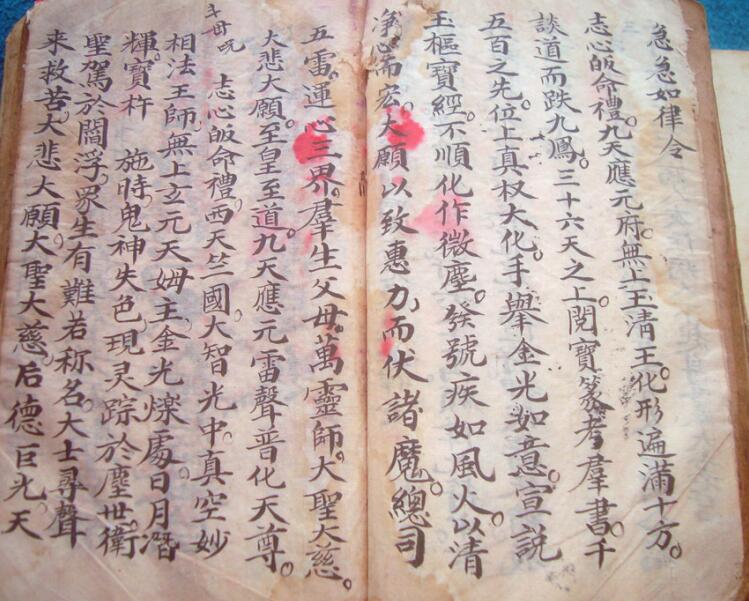 急急如律令
志心皈命禮。九天應元府。無上玉清王。化形遍滿十方。
談道而趺九鳳。三十六天之上。閱寶篆。考羣書。千
五百之先。位上真权大化。手舉金光如意。宣説
玉樞寶經。不順化作微塵。發號疾如風火。以清
淨心而宏大願。以致惠力。而伏諸魔。總司
五雷。運心三界。羣生父母。萬靈師。大聖大慈。
大悲大願。至皇至道。九天應元雷聲普化天尊。
斗母咒
志心皈命禮。西天竺國。大智光中。真空妙
相法王師。無上玄元天姆主。金光爍處日月潛
輝。寶杵施時。鬼神失色。現灵踪於塵世。衛
聖駕於閻浮。眾生有難若称名。大士尋聲
来救苦。大悲大願。大聖大慈。后德巨光天